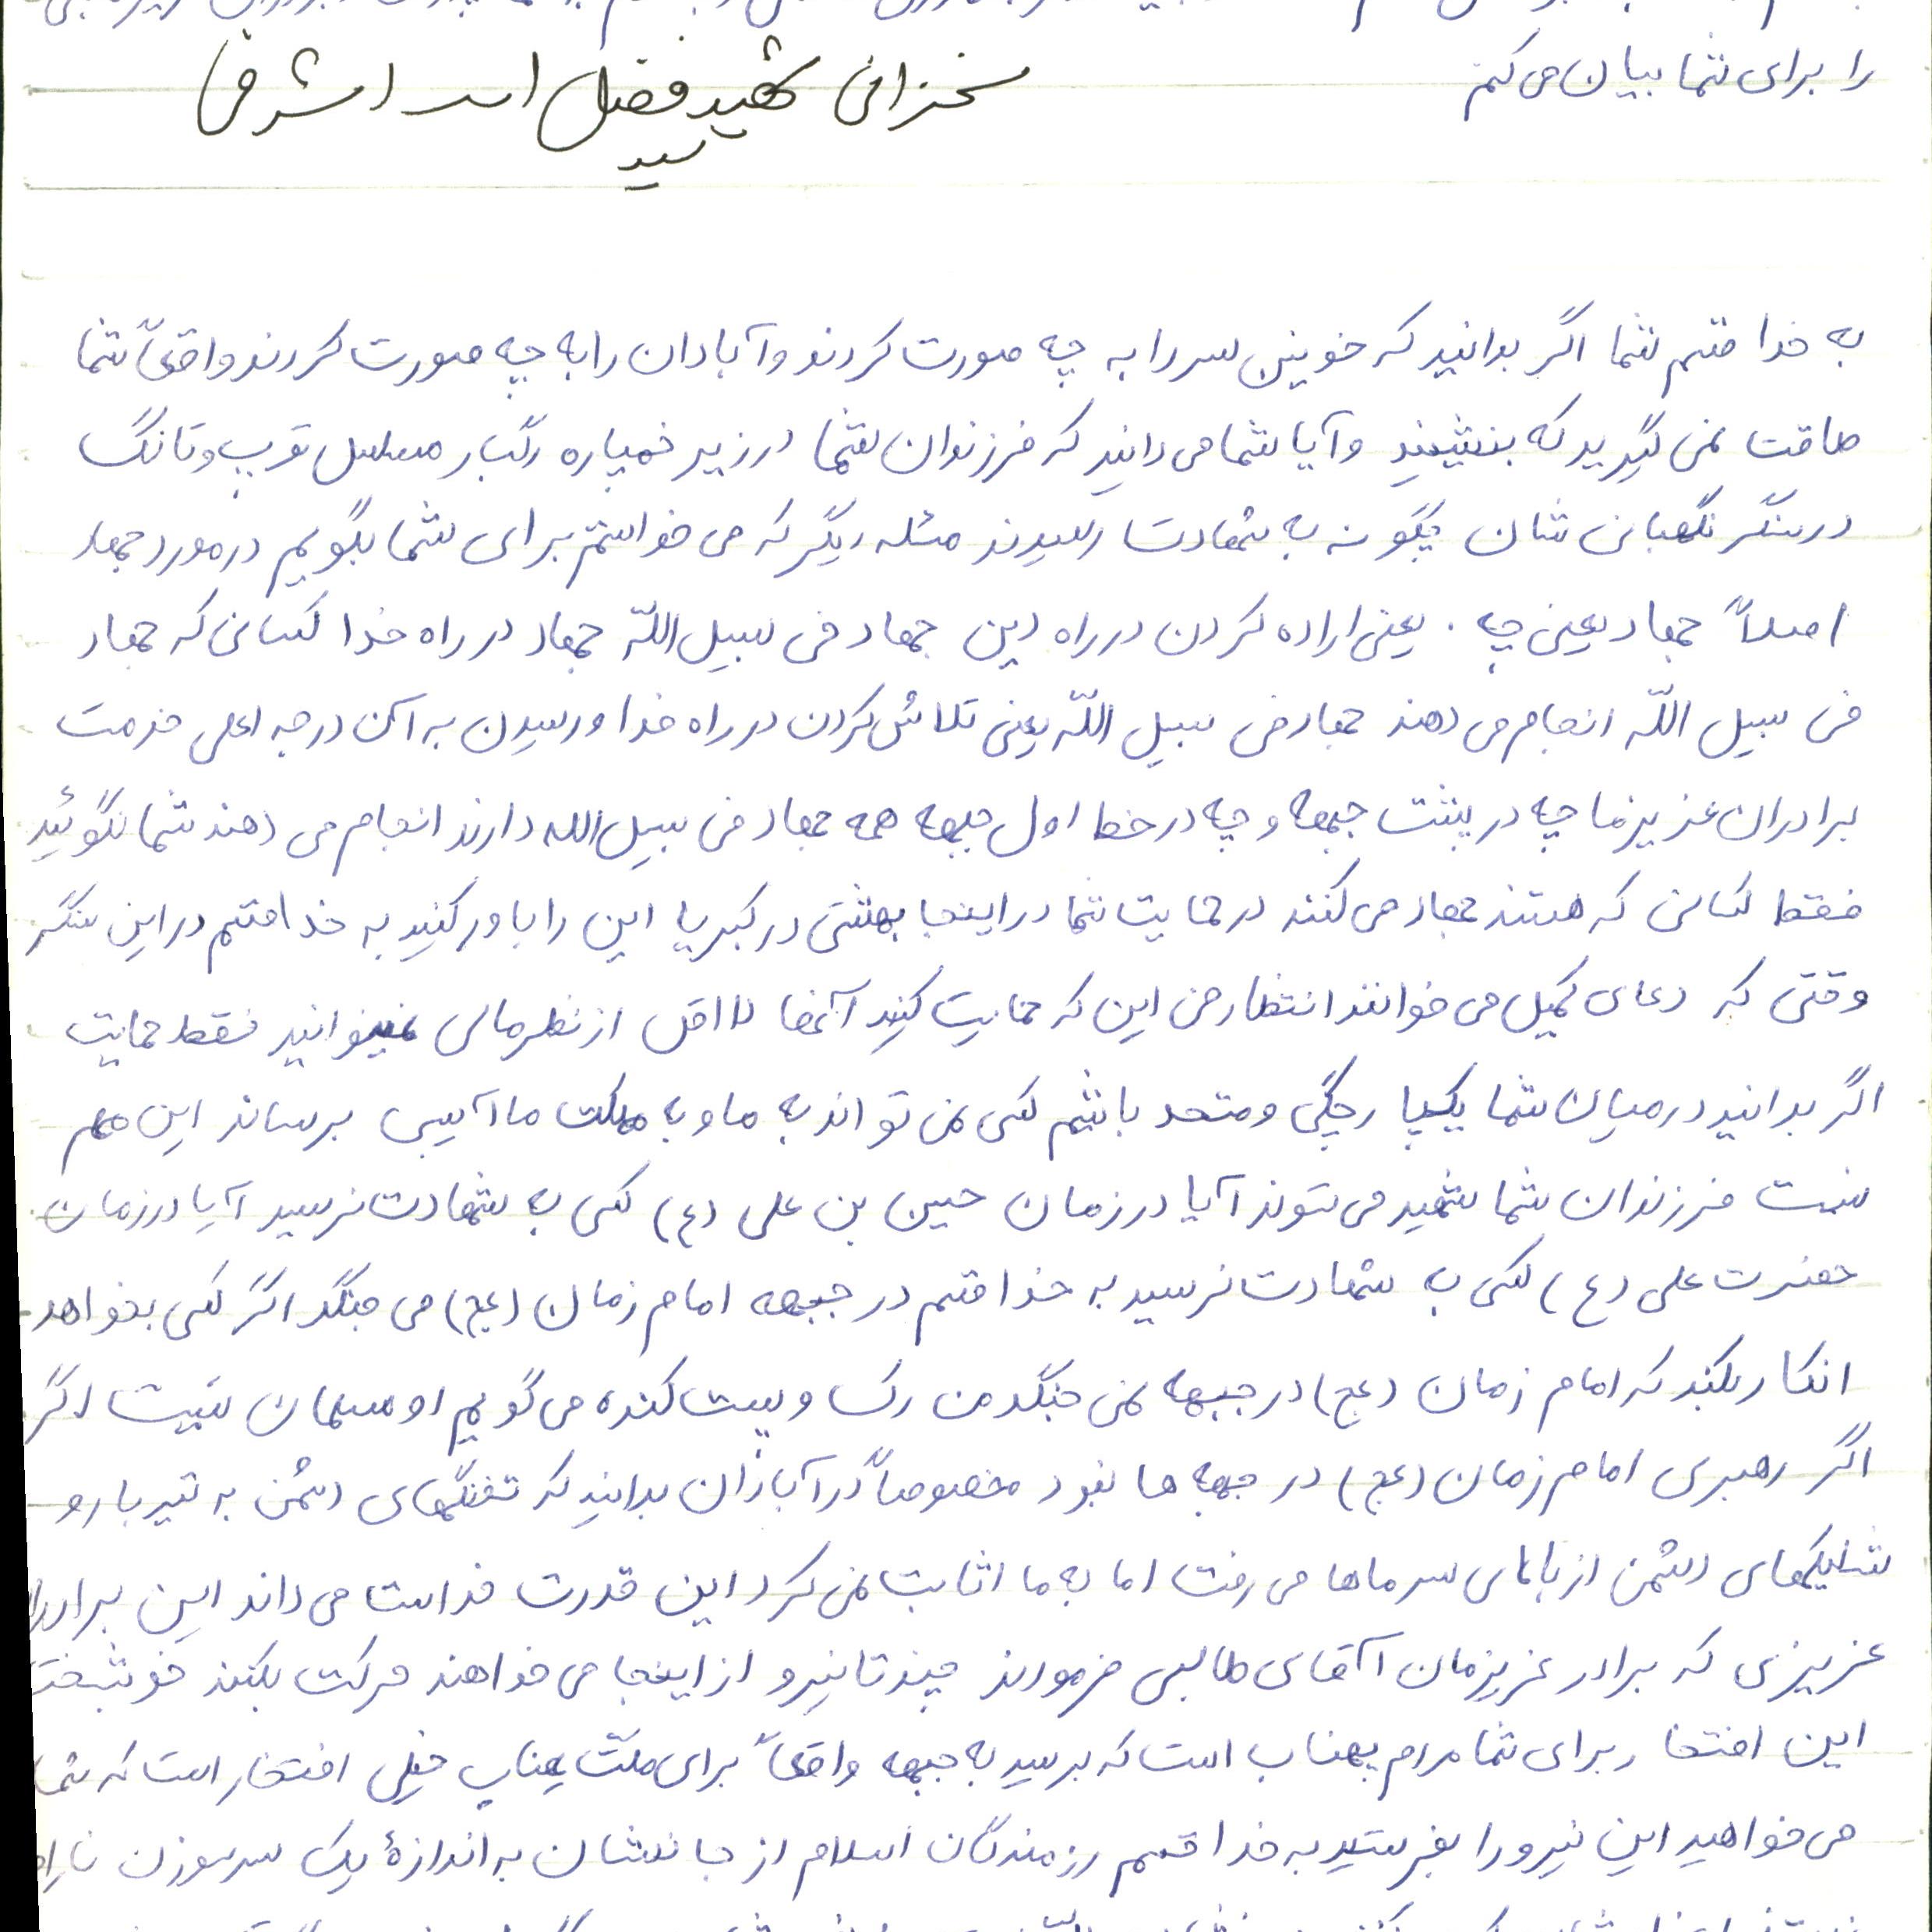 را برای شما بیان می کنم
سخنرانی شهید فضل اله اشرفی
سید
به خدا قسم شما اگر بدانید که خونین سر را به چه صورت کردند و آبادان را به چه صورت کردند واقعاً شما
طاقت نمی گیرید که بنشینید و آیا شما می دانید که فرزندان شما در زیر خمپاره رگبار مسلسل توپ و تانک
در سنگر نگهبانی شان چگونه به شهادت رسیدند مسئله دیگر که می خواستم برای شما بگویم در مورد جهاد
اصلاً جهاد یعنی چه . یعنی اراده کردن در راه دین جهاد فی سبیل اللّه جهاد در راه خدا کسانی که جهاد
فی سبیل اللّه انجام می دهند جهاد فی سبیل اللّه یعنی تلاش کردن در راه خدا و رسیدن به آن درجه اعلی خدمت
برادران عزیز ما چه در پشت جبهه و چه در خط اول جبهه همه جهاد فی سبیل الله دارند انجام می دهند شما نگوئید
فقط کسانی که هستند جهاد می کنند در حمایت شما در اینجا بهشتی در کبریا این را باور کنید به خدا قسم در این سنگر
وقتی که دعای کمیل می خوانند انتظار من این که حمایت کنید آنها لااقل از نظر مالی نمیتوانید فقط حمایت
اگر بدانید در میان شما یکپارچگی و متحد باشیم کسی نمی تواند به ما و به مملکت ما آسیبی برساند این مهم
نیست فرزندان شما شهید می شوند آیا در زمان حسین بن علی (ع) کسی به شهادت نرسید آیا در زمان
حضرت علی (ع) کسی به شهادت نرسید به خدا قسم در جبهه امام زمان (عج) می جنگد اگر کسی بخواهد
انکار بکند که امام زمان (عج) در جبهه نمی جنگد من رک و پوست کنده می گویم او مسلمان نیست اگر
اگر رهبری امام زمان (عج) در جبهه ها نبود مخصوصاً در آبادان بدانید که تفنگهای دشمن به تیربار و
شلیکهای دشمن از بالای سر ماها می رفت اما به ما اثابت نمی کرد این قدرت خداست می داند این برادران
عزیزی که برادر عزیزمان آقای طالبی فرمودند چند تا نیرو از اینجا می خواهند حرکت بکنند خوشبختا
این افتخار برای شما مردم بهناب است که برسید به جبهه واقعاً برای ملت بهناب خیلی افتخار است که شما
می خواهید این نیرو را بفرستید به خدا قسم رزمندگان اسلام از جانشان به اندازهٔ یک سر سوزن